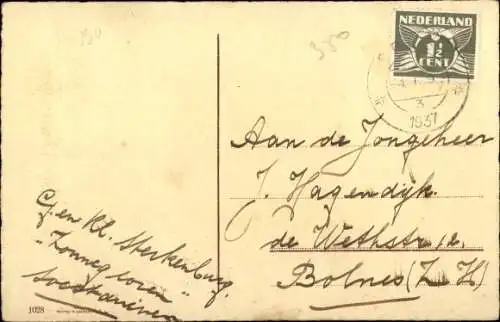 350
NEDERLAND
1½
CENT
3
1937
Aan de Jongeheer
J. Hagendijk.
de Wethstr. 12.
Bolnes (Z. H.)
G. en Kl. Sterkenburg.
"Zonnegloren"
Soestduinen
1028